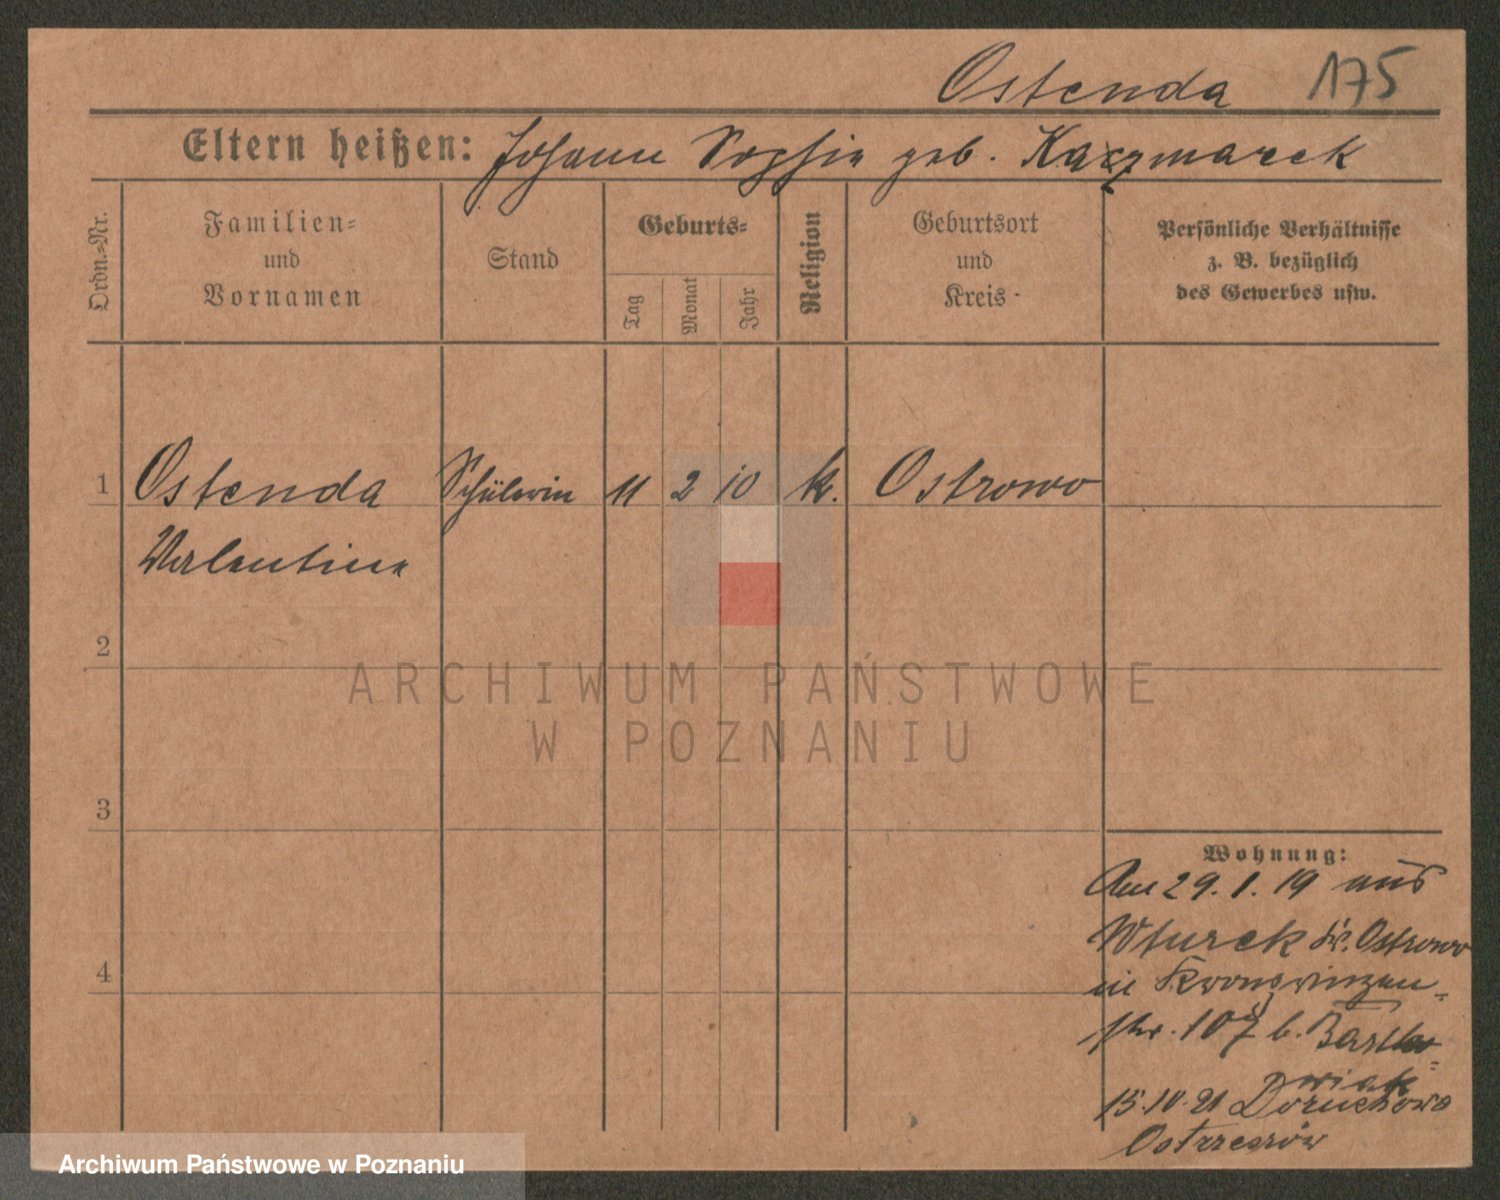 Ostenda 175
Eltern heißen: Johann Sophie geb. Kaczmarek
Ordn.-Nr.
Familien-
und
Vornamen
Stand
Geburts-
Tag
Monat
Jahr
Religion
Geburtsort
und
Kreis
Persönliche Verhältnisse
z. B. bezüglich
des Gewerbes usw.
1 Ostenda Schülerin 11 2 10 k. Ostrowo
Valentina
2
3
4
Wohnung:
Am 29.1.19 aus
Wturek Kr. Ostrowo
in Kronprinzen-
str. 107 b.
wiak
15.10.21 Doruchowo
Ostrzeszów
ARCHIWUM PAŃSTWOWE
W POZNANIU
Archiwum Państwowe w Poznaniu